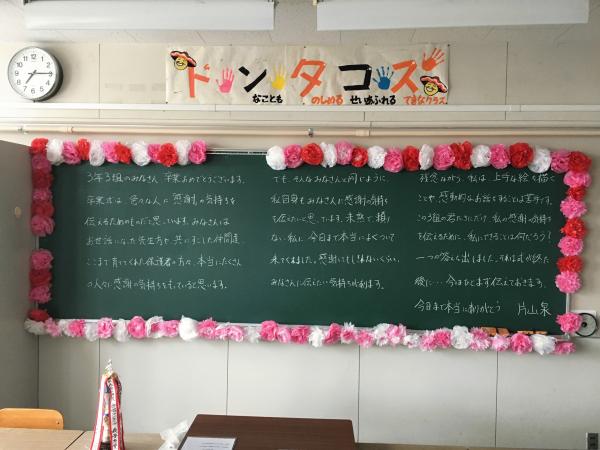 ドンタコス
なことも のしめる せいあふれる できなクラス
3年3組のみなさん、卒業おめでとうございます。
卒業式は、色々な人に感謝の気持ちを
伝えるためのものだと思っています。みなさんは
お世話になった先生方を、共にすごした仲間達、
ここまで育ててくれた保護者の方々、本当にたくさん
の人々に感謝の気持ちをもっていると思います。
でも、そんなみなさんと同じように、
私自身もみなさんに感謝の気持ち
を伝えたいと思っています。未熟で、頼り
ない私に、今日まで本当によくついて
来てくれました。感謝してもしきれないくらい、
みなさんに伝えたい気持ちがあります。
残念ながら、私は、上手な絵を描く
ことや、感動的なお話をすることは苦手です。
この3組の君たちにだけ、私の感謝の気持ち
を伝えるために、私にできることは何だろう?
一つの答えを出しました。それは式が終わった
後に・・・今はひとまず伝えておきます。
今日まで本当にありがとう 片山泉